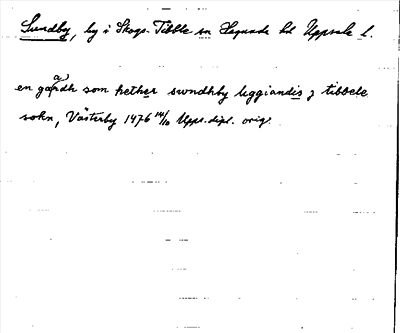 Sundby, by i Skogs-Tibble sn Hagunda hd Uppsala l.
en gardh som hether swndhby liggiandis j tibbele
sokn, Västerby 1476 14/10 Upps. dipl. orig.